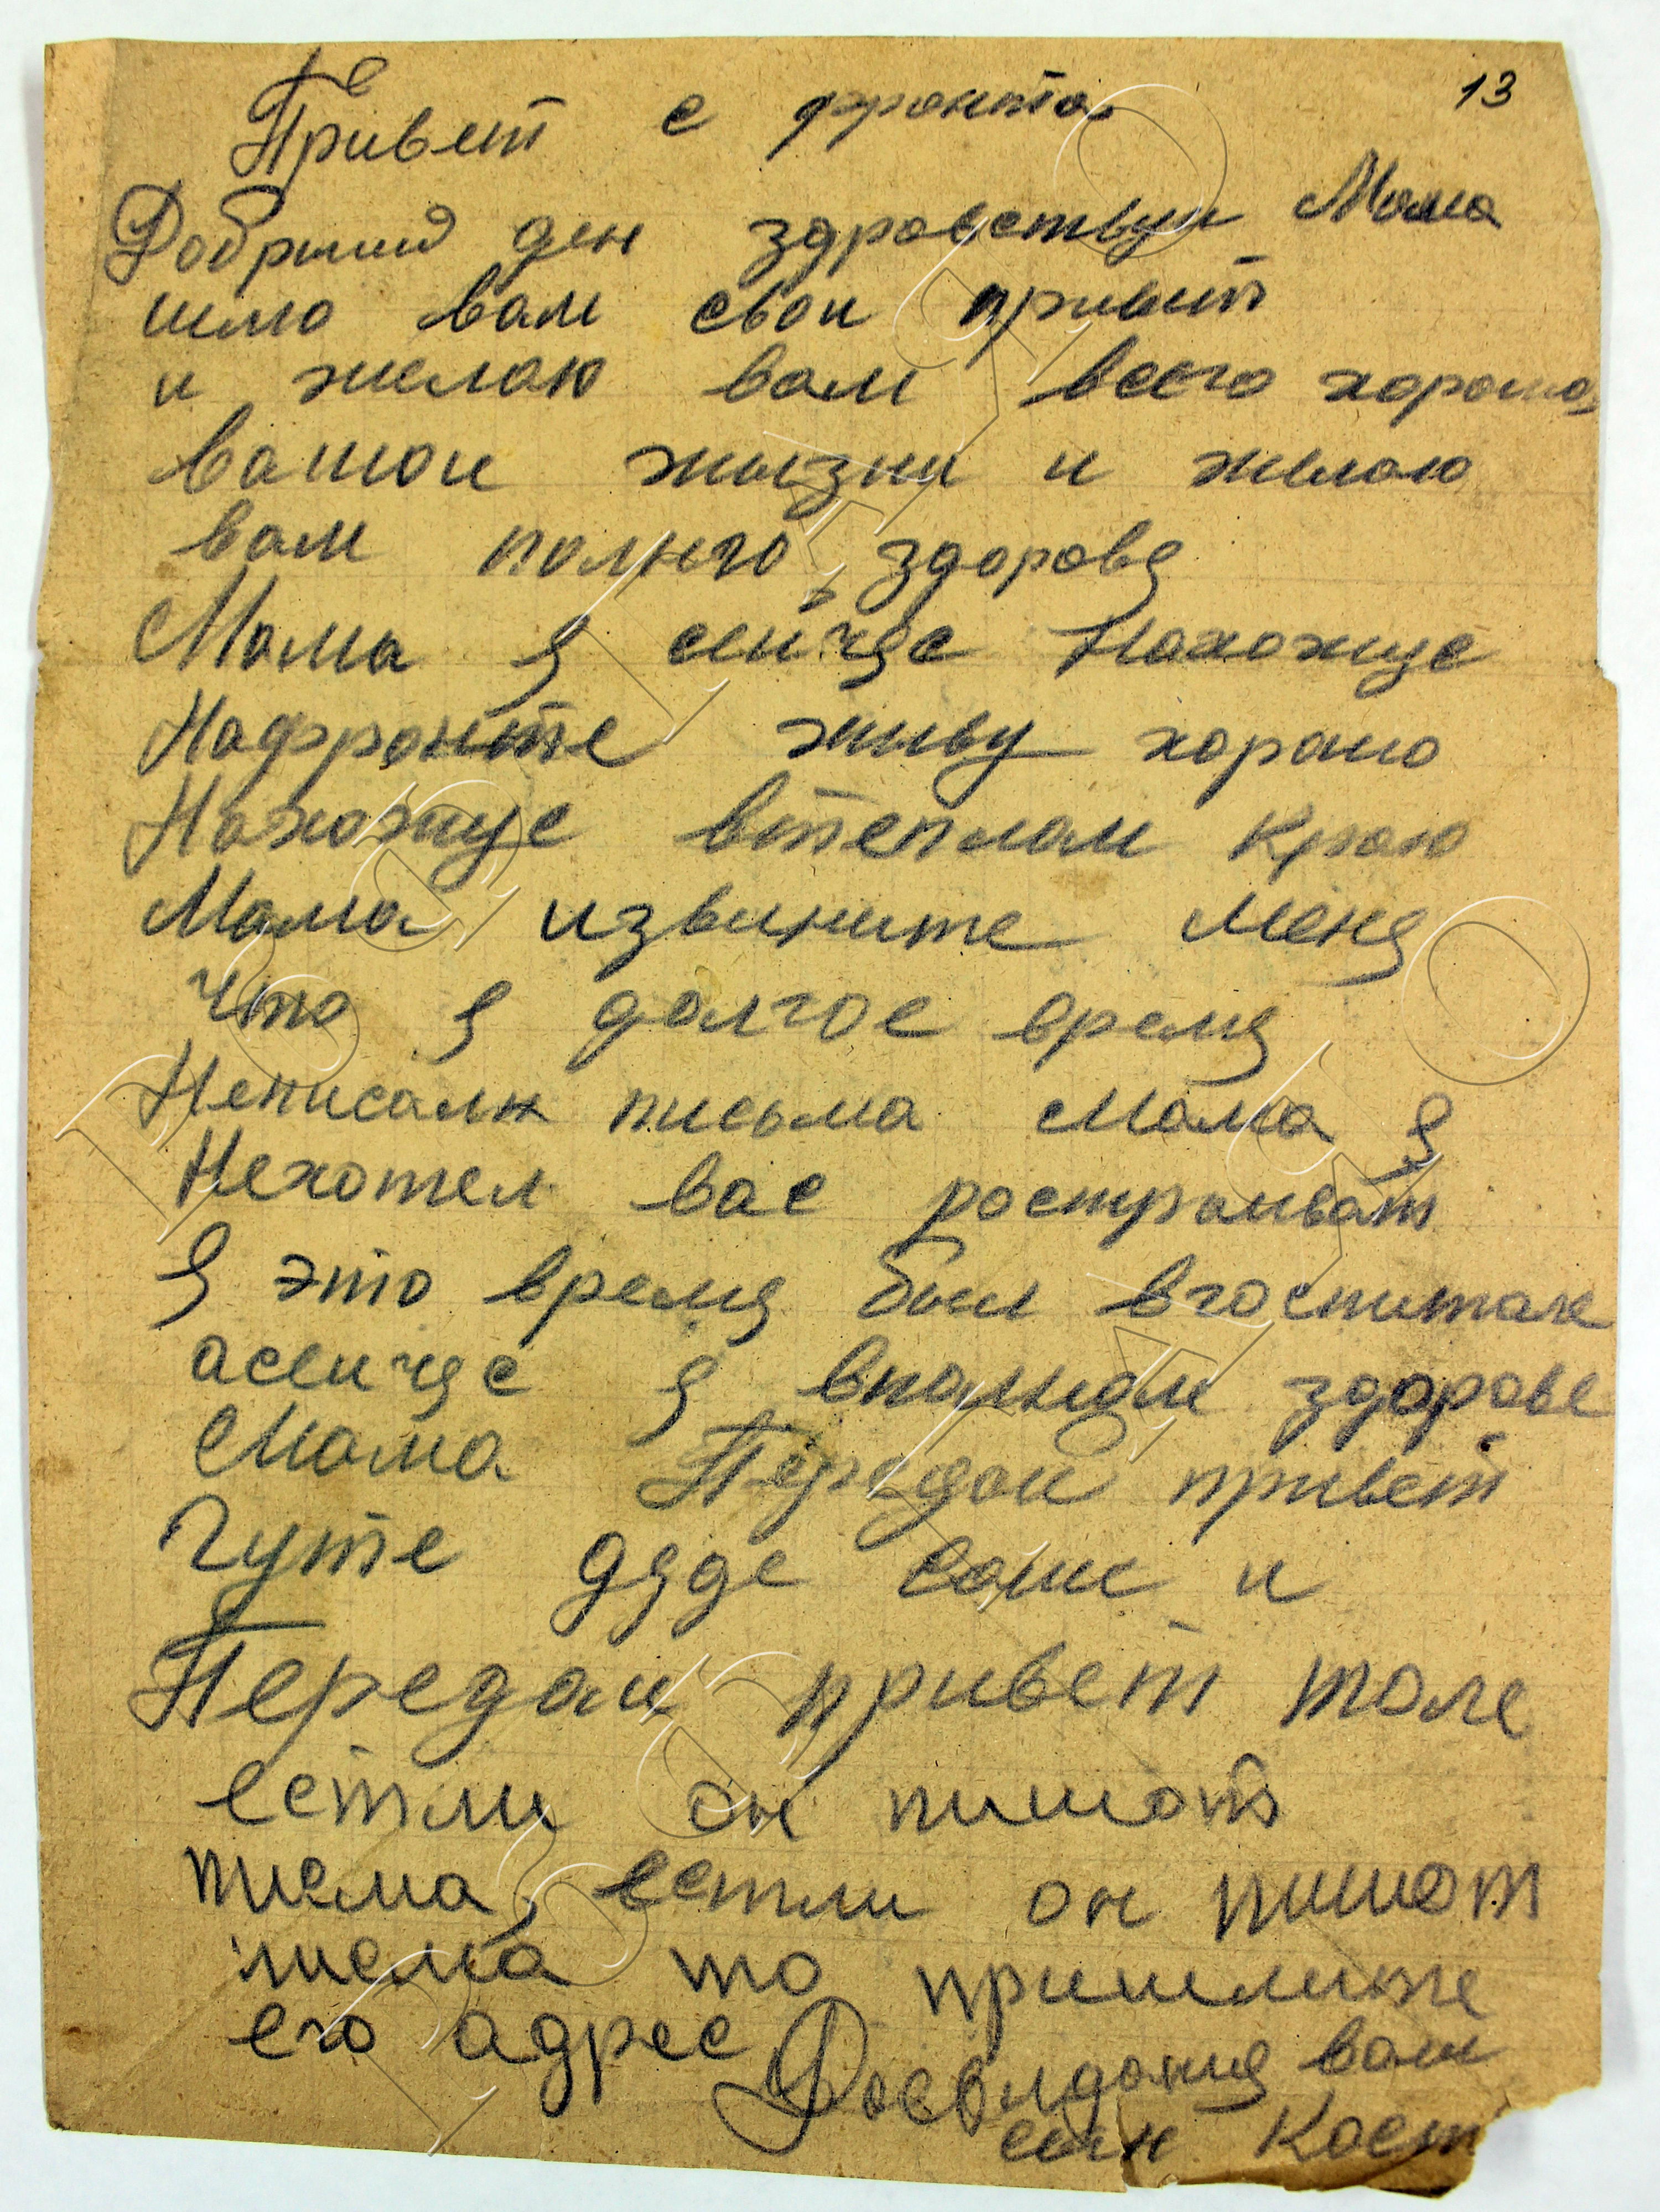 13
Привет с фронта
Добрыий ден здравствуи Мама
шлю вам свои привет
и желаю вам всего хорошо
вашои жызни и желаю
вам полнго здоровя
Мама я сеичяс Нахожус
Нафронте живу хорошо
Нахожус втеплом краю
Мама извините меня
что я долгое время
Неписал письма мама я
Нехотел вас достраиват
Я это время был вгоспитале
асеичяс я вполном здорове
Мама Передаи привет
Гуте дяде саше и
Передаи привет толе
естли он пишот
писма, естли он пишот
писма то пришлите
его адрес Досвидания ваш
сын Кост